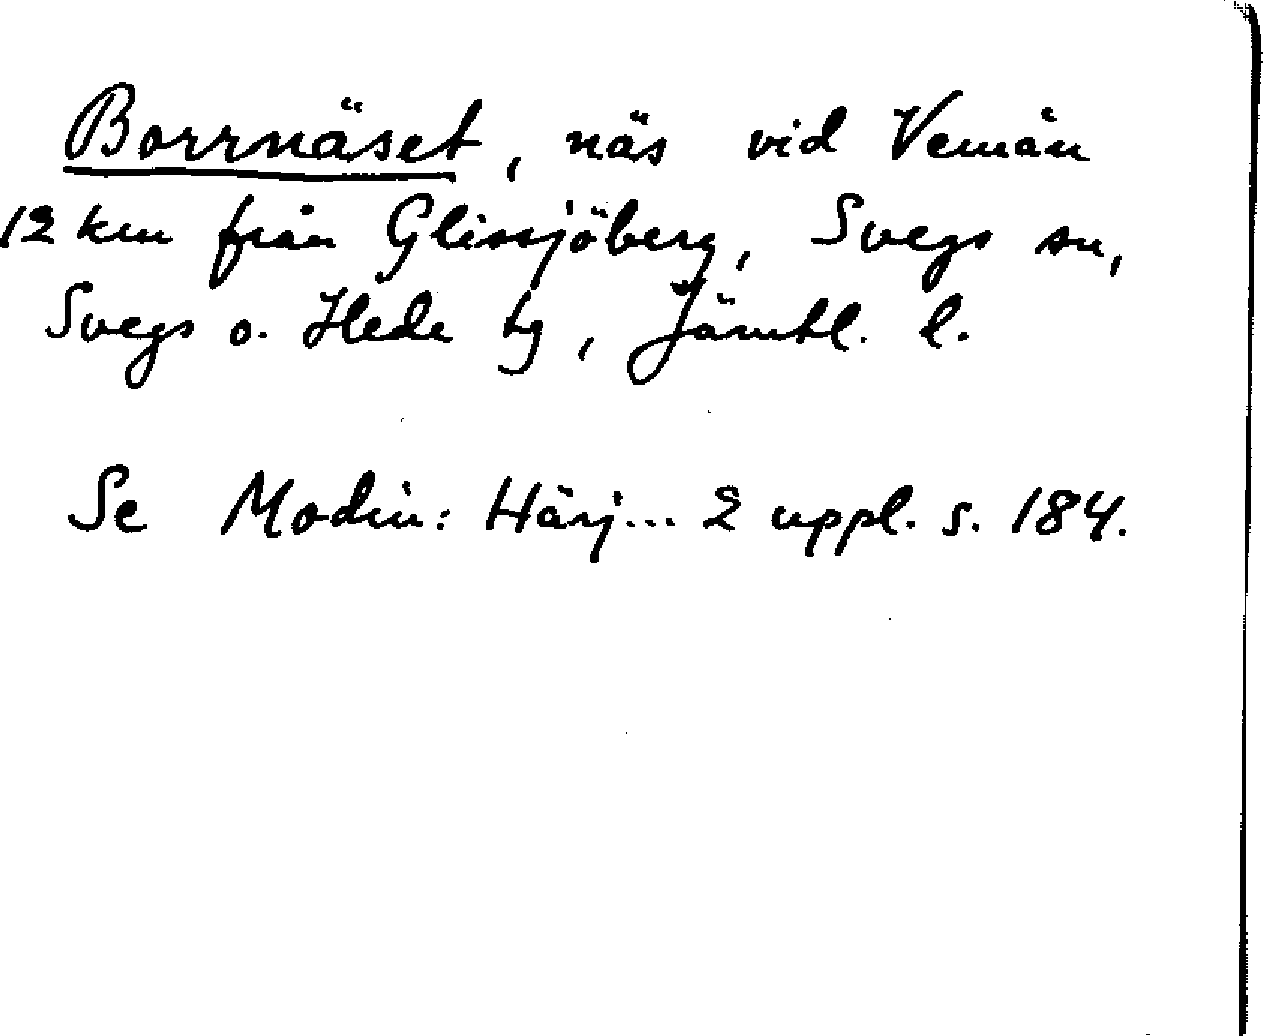 Borrnäset, näs vid Vemån
12 km från Glissjöberg, Svegs sn,
Svegs o. Hede tg, Jämtl. l.
Se Modin: Härj... 2 uppl. s. 184.